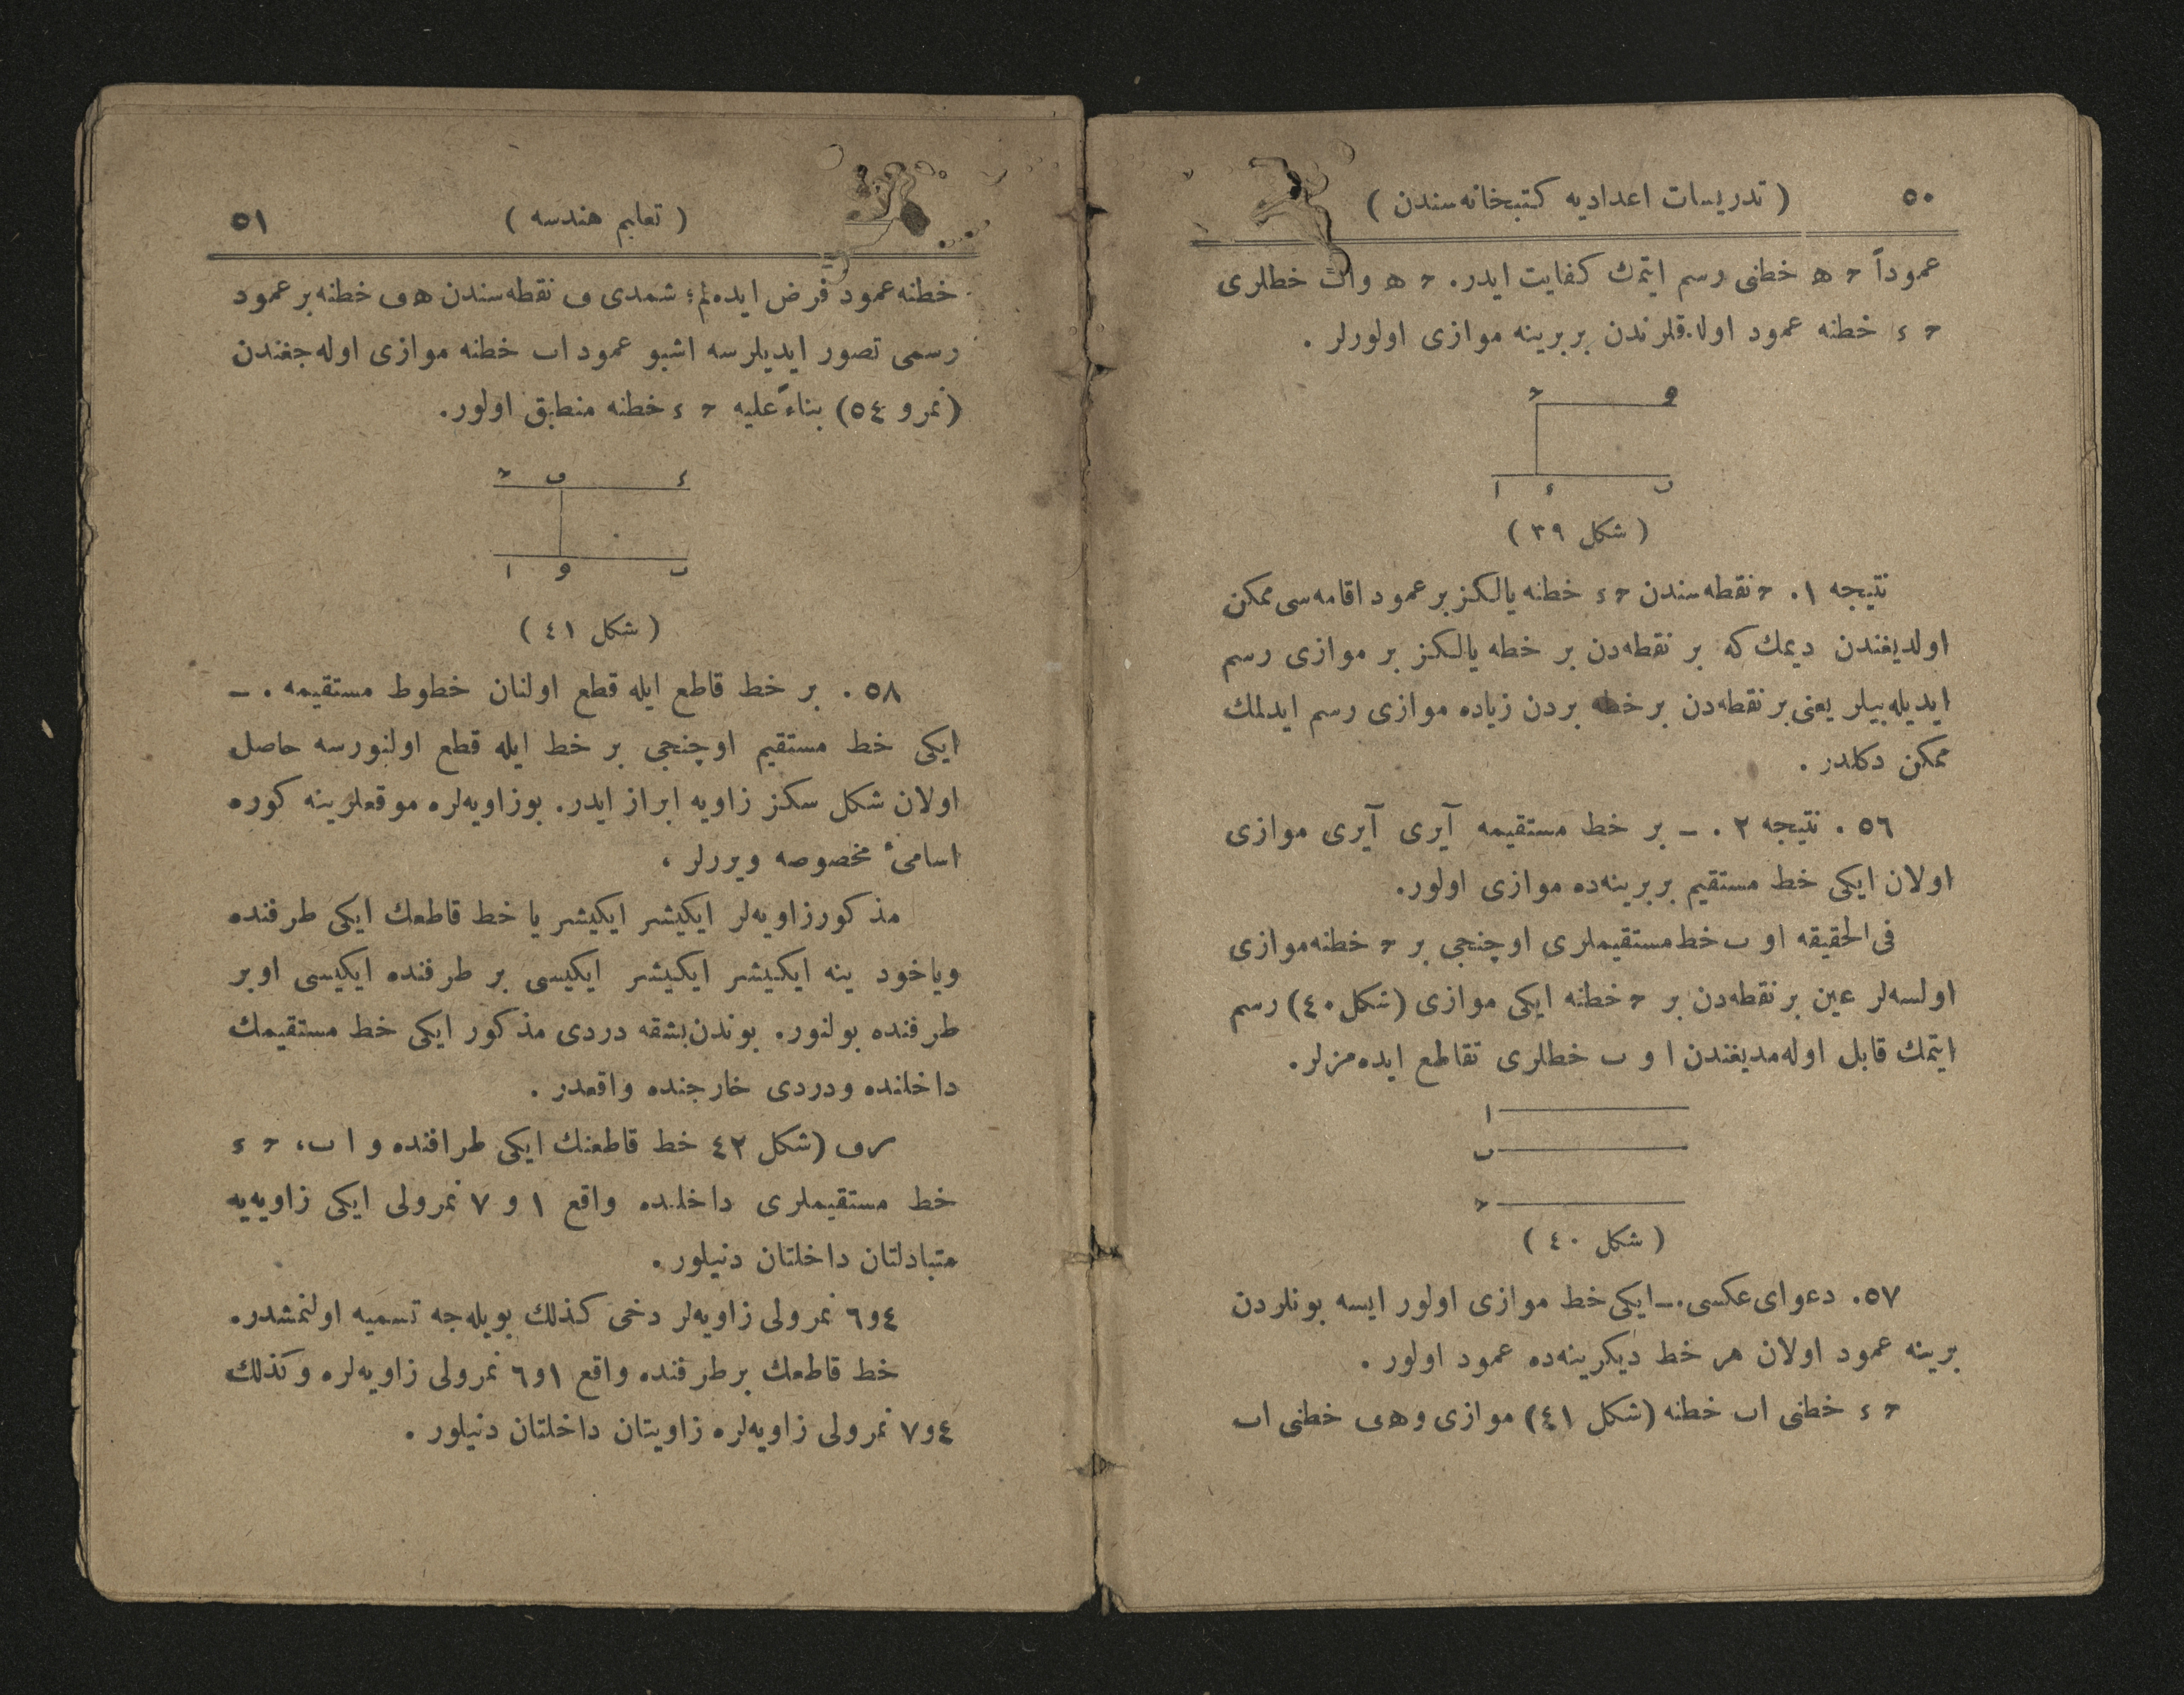 ٥٠
( تدریسات اعدادیه کتبخانه‌سندن )
عموداً ح ه خطنی رسم ایتمك کفایت ایدر. ح ه واب خطلری
ح ء خطنه عمود اوله‌قلرندن بربرینه موازی اولورلر .
ح و
ا ء ب
( شکل ٣٩ )
نتیجه ١. ح نقطه‌سندن ح ء خطنه یالکز بر عمود اقامه‌سی ممکن
اولدیغندن دیمك که بر نقطه‌دن بر خطه یالکز بر موازی رسم
ایدیله‌بیلر یعنی بر نقطه‌دن بر خطه بردن زیاده موازی رسم ایدلمك
ممکن دکلدر .
٥٦ . نتیجه ٢ . – بر خط مستقیمه آیری آیری موازی
اولان ایکی خط مستقیم بربرینه‌ده موازی اولور.
فی‌الحقیقه ا و ب خط مستقیملری اوچنجی بر ح خطنه موازی
اولسه‌لر عین بر نقطه‌دن بر ح خطنه ایکی موازی (شکل ٤٠) رسم
ایتمك قابل اوله‌مدیغندن ا و ب خطلری تقاطع ایده‌مزلر.
ا
ب
ح
( شکل ٤٠ )
٥٧. دعوای عکسی.– ایکی خط موازی اولور ایسه بونلردن
برینه عمود اولان هر خط دیکرینه‌ده عمود اولور .
ح ء خطنی اب خطنه (شکل ٤١) موازی و ه‍ی خطنی اب
( تعلیم هندسه )
٥١
خطنه عمود فرض ایده‌لم؛ شمدی ف نقطه‌سندن ه ف خطنه بر عمود
رسمی تصور ایدیلرسه اشبو عمود اب خطنه موازی اوله‌جغندن
(نمرو ٥٤) بناءً علیه ح ء خطنه منطبق اولور.
ح ف ء
ا و ب
( شکل ٤١ )
٥٨ . بر خط قاطع ایله قطع اولنان خطوط مستقیمه . –
ایکی خط مستقیم اوچنجی بر خط ایله قطع اولنورسه حاصل
اولان شکل سکز زاویه ابراز ایدر. بو زاویه‌لره موقعلرینه کوره
اسامیٔ مخصوصه ویررلر .
مذکور زاویه‌لر ایکیشر ایکیشر یا خط قاطعك ایکی طرفنده
ویاخود ینه ایکیشر ایکیشر ایکیسی بر طرفنده ایکیسی اوبر
طرفنده بولنور. بوندن بشقه دردی مذکور ایکی خط مستقیمك
داخلنده و دردی خارجنده واقعدر .
رف (شکل ٤٢ خط قاطعنك ایکی طرافنده و ا ب، ح ء
خط مستقیملری داخلنده واقع ١ و ٧ نمرولی ایکی زاویه‌یه
متبادلتان داخلتان دنیلور.
٤و٦ نمرولی زاویه‌لر دخی کذلك بویله‌جه تسمیه اولنمشدر.
خط قاطعك بر طرفنده واقع ١و٦ نمرولی زاویه‌لره وکذلك
٤و٧ نمرولی زاویه‌لره زاویتان داخلتان دنیلور .